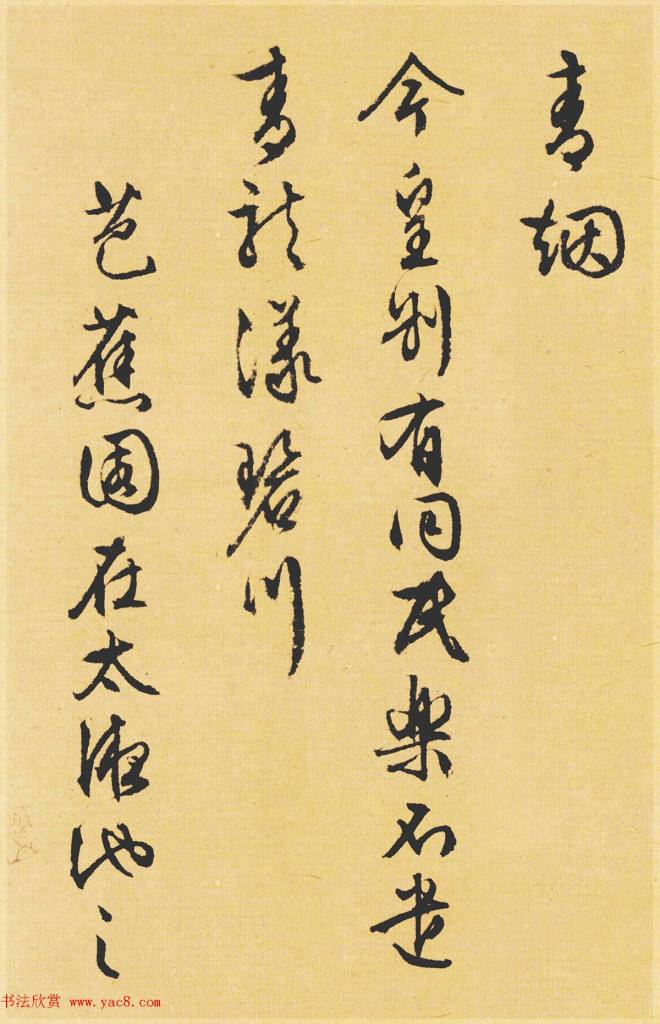 青烟
今皇別有同民樂不遣
青龍漾碧川
芭蕉園在太液池之
书法欣赏 www.yac8.com